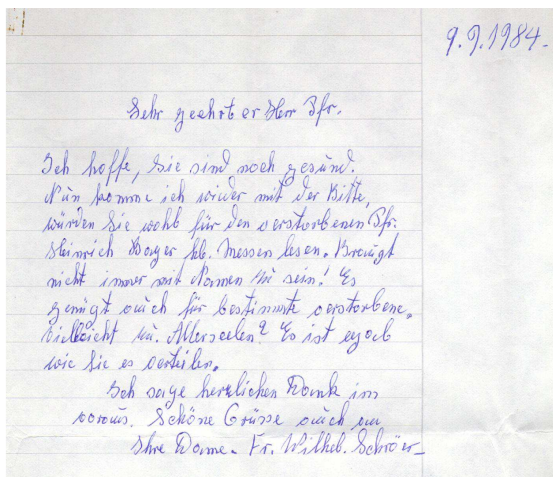 9.9.1984.
Sehr geehrter Herr Pfr.
Ich hoffe, Sie sind noch gesünd.
Nün komme ich wieder mit der Bitte,
würden Sie wohl für den verstorbenen Pfr.
Heinrich Bayer hl. Messen lesen. Braugt
nicht immer mit Namen zu sein! Es
genügt auch für bestimmte verstorbene,
vielleicht zu. Allerseelen? Es ist egal
wie Sie es verteilen.
Ich sage herzlichen Dank im
voraus. Schöne Grüsse auch an
Ihre Dame. Fr. Wilhel. Schröer